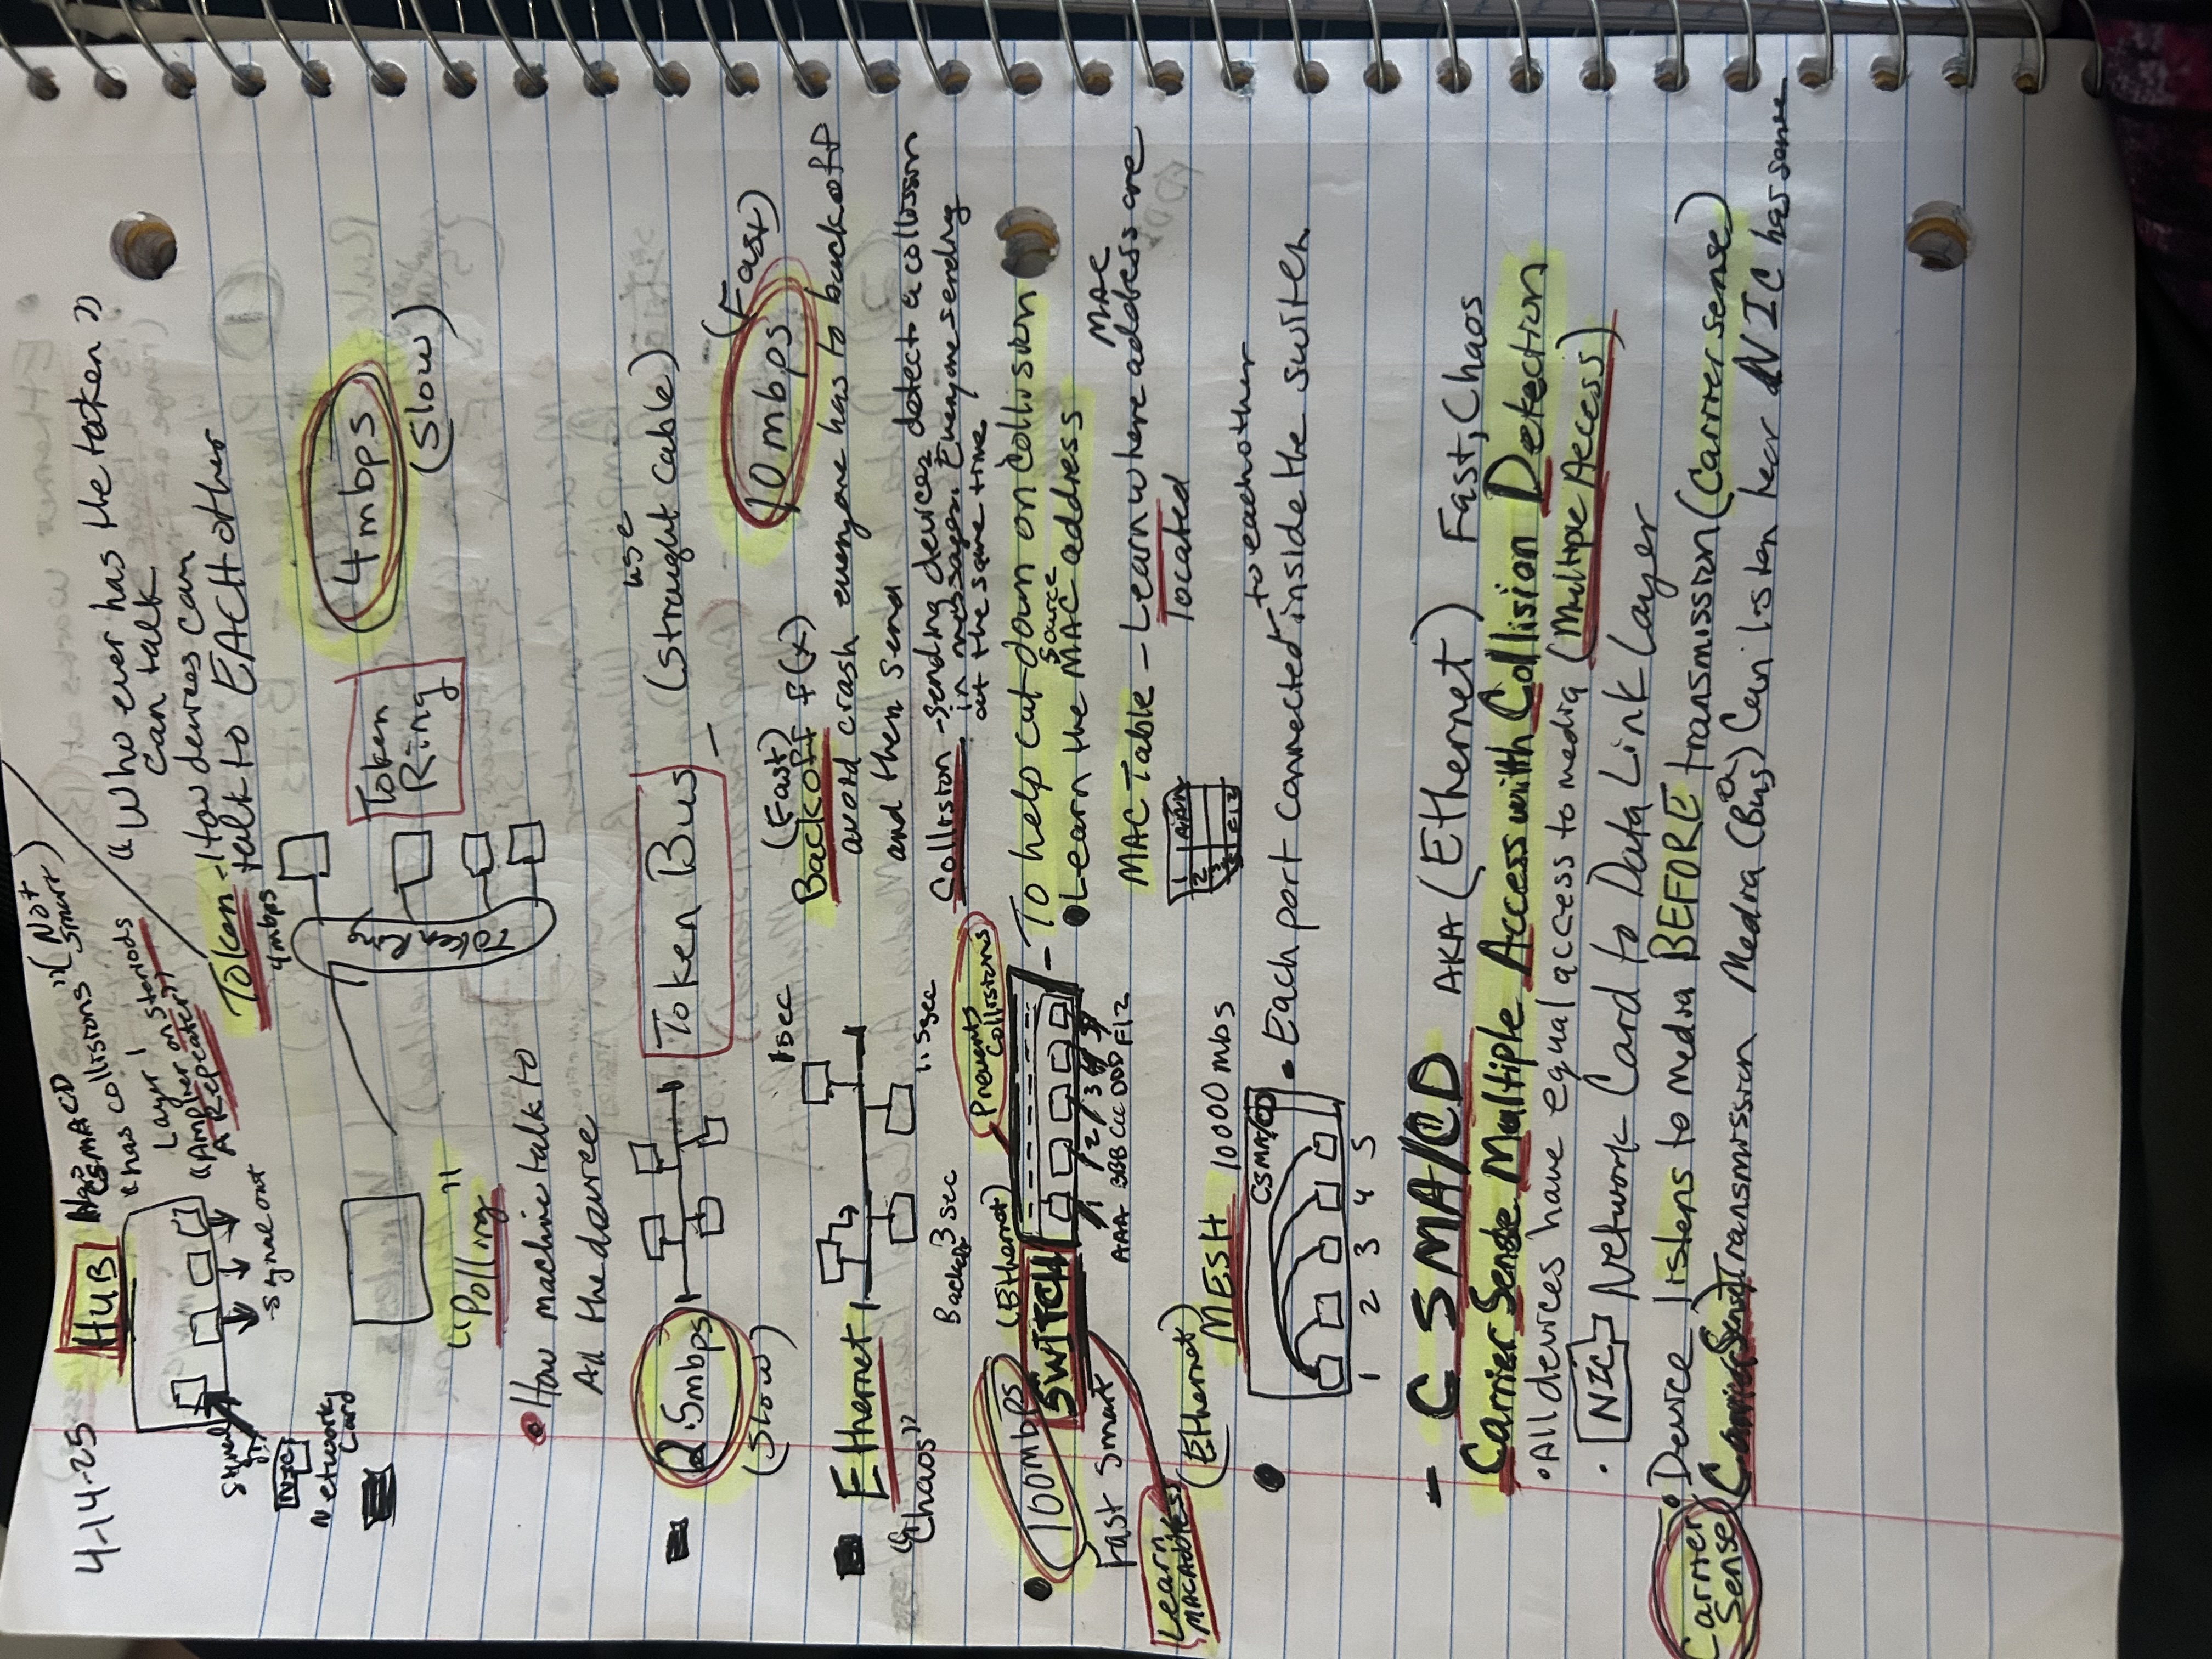 4-14-25
HUB
Has
CSMACD
"has collisions" (Not
smart)
Layer 1
"Amplier on steriods
A Repeater"
Signal
Signal out
NIC
Network
Card
"Who ever has the token"
can talk
Token - How devices can
talk to EACH other
4mbps
Token Ring
Token
Ring
4mbps
(Slow)
"Polling"
How machine talk to
All the device
2.5mbps
(Slow)
Token Bus
use
(Straight cable)
10mbps
(Fast)
Ethernet
"Chaos"
1 sec
3 sec
1.5sec
(Fast)
Backoff f(x)
avoid crash everyone has to backoff
and then send
Collision - sending devices detect a collision
in messages. Everyone sending
at the same time
100mbps
(Ethernet)
Prevents
Collisions
SWITCH
Fast Smart
1 2 3 4 5
AAA BBB CCC DDD F12
Learn
MAC Address
- To help cut down on collision
Source
Learn the MAC address
MAC
MAC Table - Learn where address are
located
1 AAA
2
3
5 F12
(Ethernet)
MESH 10000 mbs
CSMA/CD
1 2 3 4 5
to eachother
• Each port connected inside the switch
- CSMA/CD AKA (Ethernet) Fast, Chaos
Carrier Sense Multiple Access with Collision Detection
• All devices have equal access to media (Multiple Access)
• NIC Network Card to Data Link Layer
Carrier
Sense
• Device listens to media BEFORE transmission (Carrier sense)
(Carrier Sense) Transmission Media (Bus) Can listen hear NIC has sense